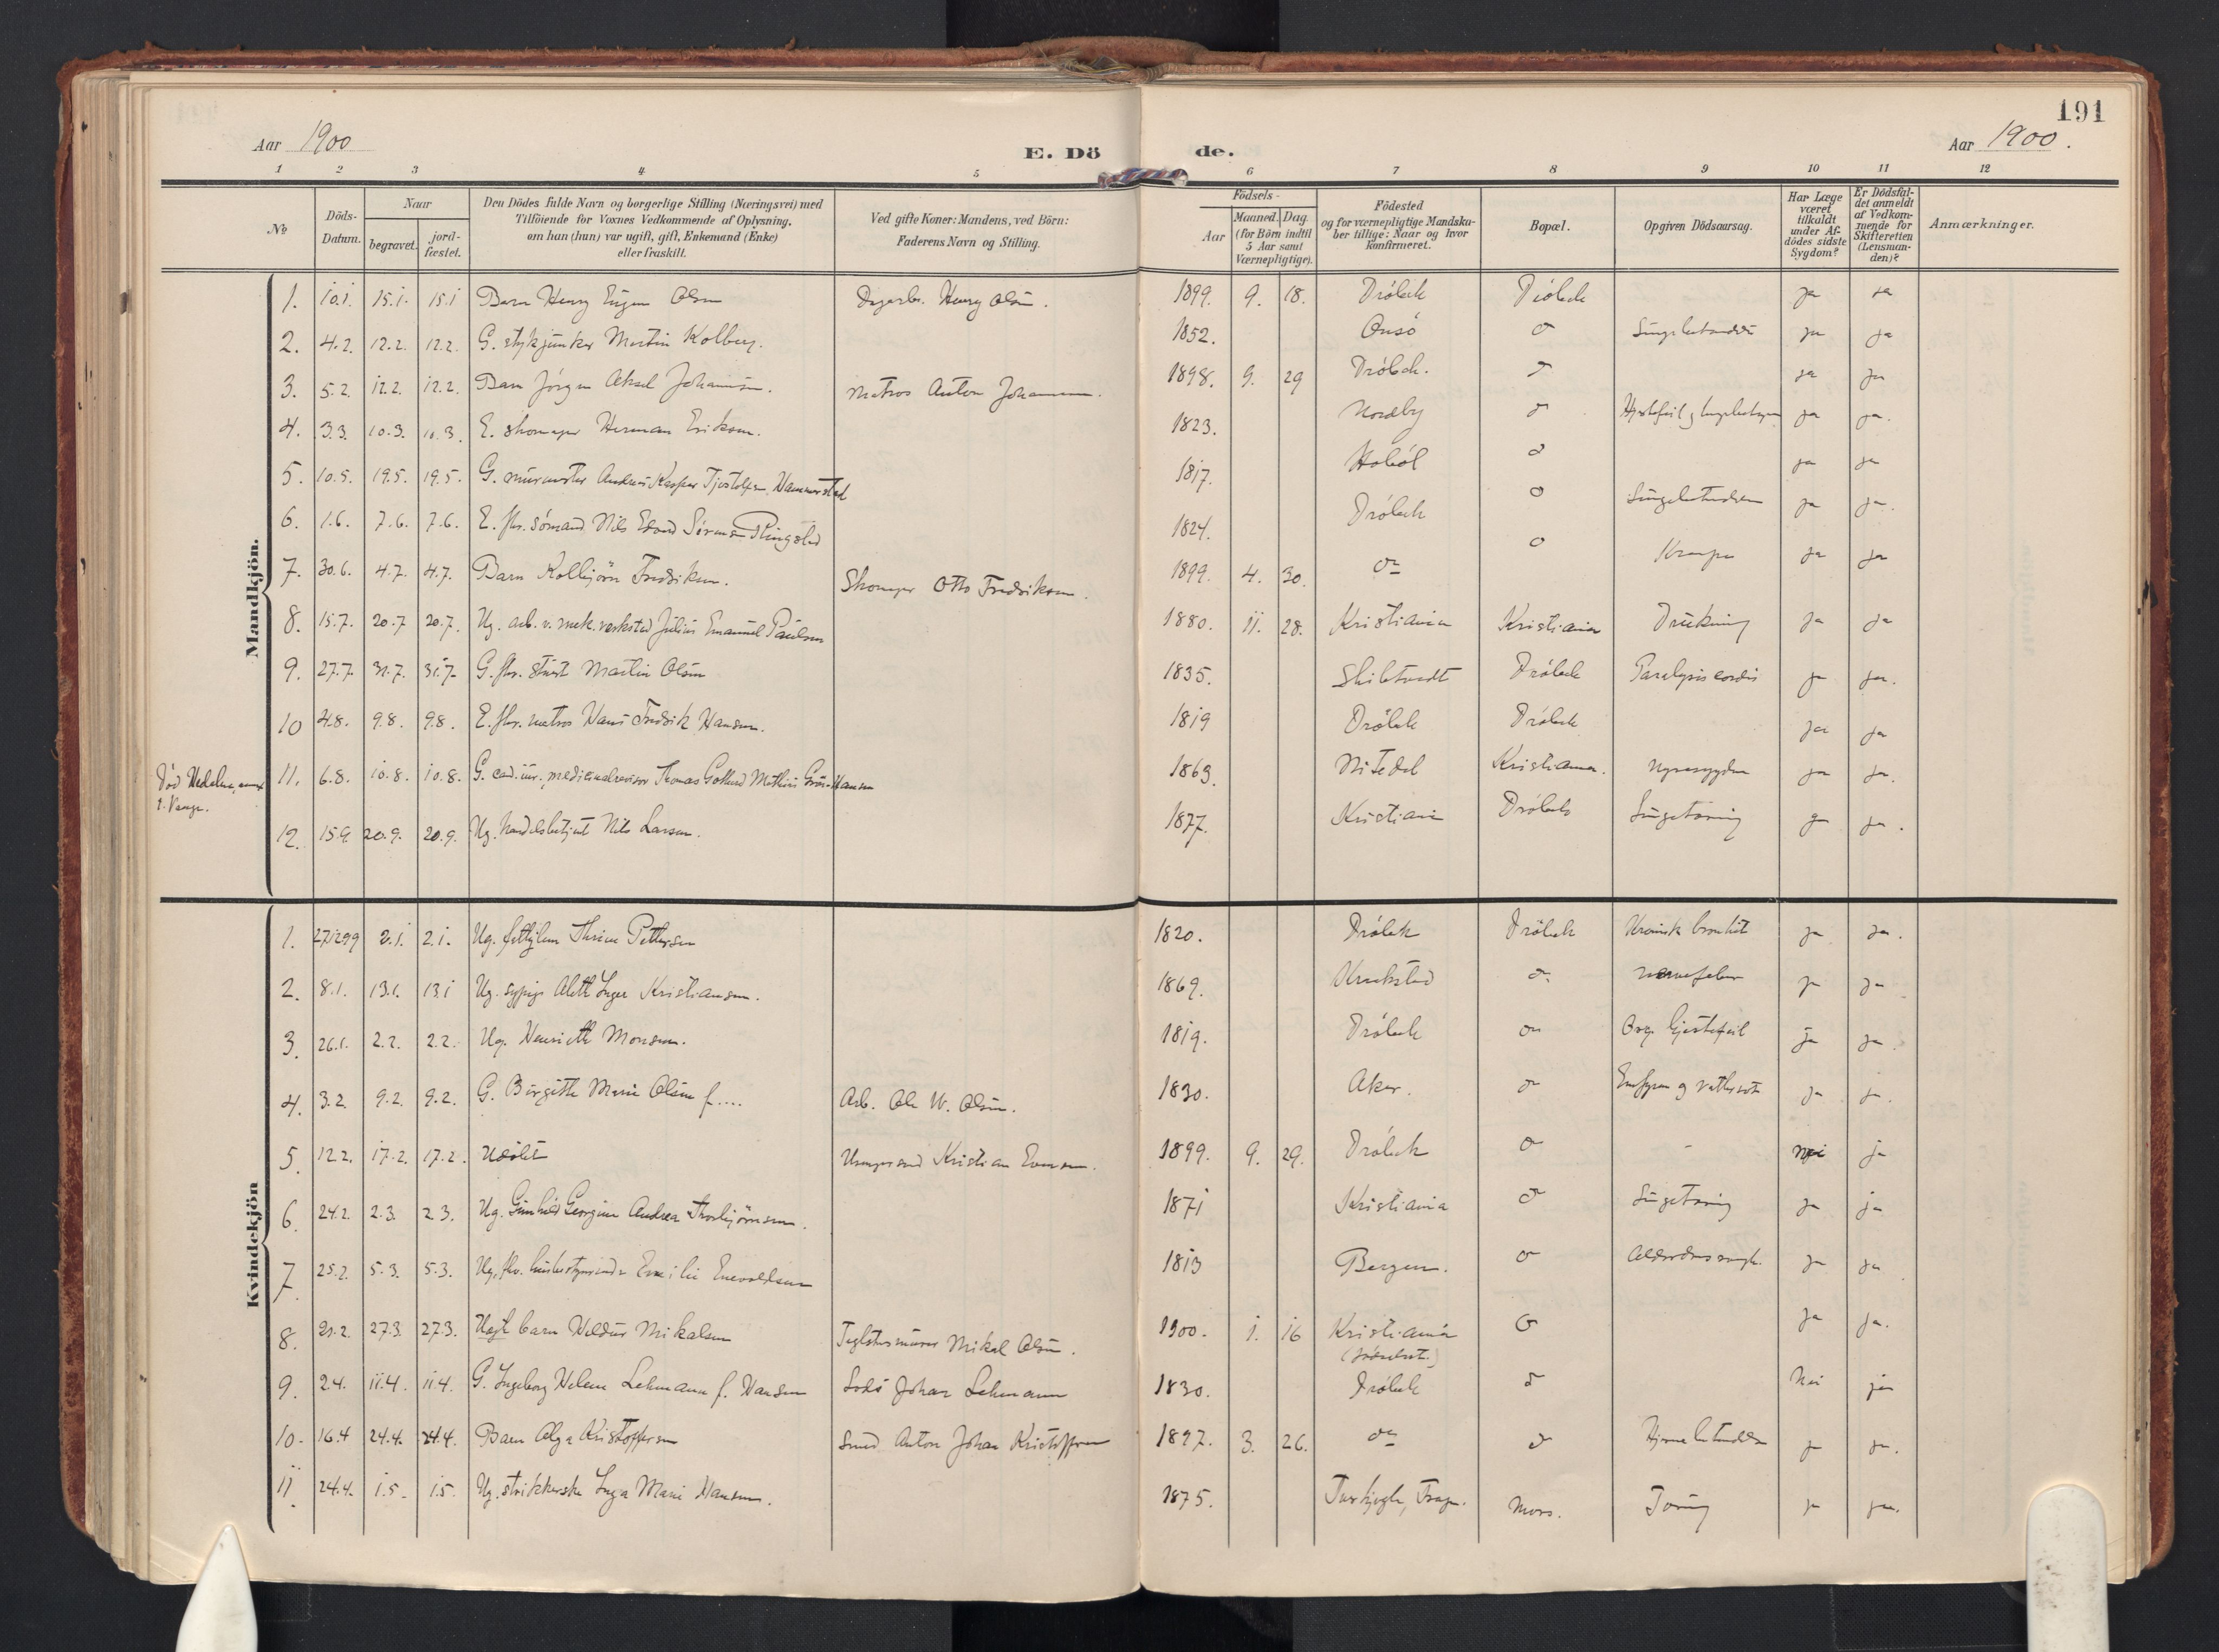 191
Aar 1900
E. Dö de.
Aar 1900.
1 2 3 4 5 6 7 8 9 10 11 12
№
Döds-Datum.
Naar
begravet.
jord-fæstet.
Den Dödes fulde Navn og borgerlige Stilling (Næringsvei) med
Tilföiende for Voxnes Vedkommende af Oplysning,
om han (hun) var ugift, gift, Enkemand (Enke)
eller fraskilt.
Ved gifte Koner: Mandens, ved Börn:
Faderens Navn og Stilling.
Födsels-
Aar
Maaned. Dag.
(for Börn indtil
5 Aar samt
Værnepligtige).
Födested
og for værnepligtige Mandska-
ber tillige: Naar og hvor
konfirmeret.
Bopæl.
Opgiven Dödsaarsag.
Har Læge
været
tilkaldt
under Af-
dödes sidste
Sygdom?
Er Dödsfal-
det anmeldt
af Vedkom-
mende for
Skifteretten
(Lensman-
den)?
Anmærkninger.
Mandkjön.
1. 10.1. 15.1. 15.1 Barn Henry Eugen Olsen Dagarb. Henry Olsen. 1899. 9. 18. Dröbak Dröbak ja ja
2. 4.2. 12.2. 12.2. G. stykjunker Martin Kolberg. 1852. Onsö do Lungebetændelse ja ja
3. 5.2. 12.2. 12.2. Barn Jörgen Aksel Johansen. Matros Anton Johansen. 1898. 9. 29 Dröbak. do ja ja
4. 3.3. 10.3. 10.3. E. skomager Herman Eriksen. 1823. Nordby do ja ja.
5. 10.5. 19.5. 19.5. G. murmester Andreas Kasper Tjostolfsen Hammerstad 1817. Hoböl do ja ja
6. 1.6. 7.6. 7.6. E. fhv. sömand Nils Edvard Sörensen Ringstad 1824. Dröbak do Lungebetændelse ja ja.
7. 30.6. 4.7. 4.7. Barn Kolbjörn Fredriksen. Skomager Otto Fredriksen. 1899. 4. 30. do do Krampe ja ja
8. 15.7. 20.7 20.7. Ug. arb. v. mek. verksted Julius Emanuel Paulsen 1880. 11. 28. Kristiania Kristiania Drukning ja ja
9. 27.7. 31.7. 31.7. G. fhv. stuert Martin Olsen 1835. Skibtvedt Dröbak Paralysis cordis ja ja.
10 4.8. 9.8. 9.8. E. fhv. matros Hans Fredrik Hansen. 1819 Dröbak Dröbak ja ja
Död Hedalen, annex
t. Vang.
11. 6.8. 10.8. 10.8. G. cand. jur., medicinalrevisor Thomas Gotthard Mathias Grön-Hansen 1863. Nitedal Kristiania. Nyresygdom ja ja.
12. 15.9. 20.9. 20.9. Ug. handelsbetjent Nils Larsen. 1877. Kristiania Dröbak Lungetæring ja ja.
Kvindekjön
1. 27.12.99 2.1. 2.1. Ug. fattiglem Thrine Pettersen 1820. Dröbak Dröbak Kronisk bronkit ja ja.
2. 8.1. 13.1. 13.1 Ug. sypige Aleth Inger Kristiansen. 1869. Kraakstad do Nervefeber ja ja
3. 26.1. 2.2. 2.2. Ug. Henriette Monsen. 1819. Dröbak do Org. hjertefeil ja ja.
4. 3.2. 9.2. 9.2. G. Birgitte Marie Olsen f.... Arb. Ole W. Olsen. 1830. Aker. do ja ja.
5. 12.2. 17.2. 17.2. Udöbt Kristian Evensen. 1899. 9. 29. Dröbak do - nei ja
6. 24.2. 2.3. 2.3. Ug. Gunhild Georgine Andrea Thorbjörnsen. 1871 Kristiania do Lungetæring ja ja
7. 25.2. 5.3. 5.3. Ug. fhv. husbestyrerinde Emilie Enevoldsen 1813 Bergen. do Alderdomssvagh. ja ja
8. 27.3. 27.3. Uægte barn Haldur Mikalsen Mikal Olsen. 1900. 1. 16 Kristiania (födselsst.) do ja ja.
9. 2.4. 11.4. 11.4. G. Ingeborg Helene Lehmann f. Hansen Lods Johan Lehmann 1830. Dröbak do Nei ja
10. 16.4 24.4. 24.4. Barn Olga Kristoffersen Smed Anton Johan Kristoffersen 1897. 3. 26. do do Hjernebetændelse ja ja.
11. 24.4. 1.5. 1.5. Ug. strikkerske Inga Marie Hansen. 1875. Moss. Tæring ja ja.